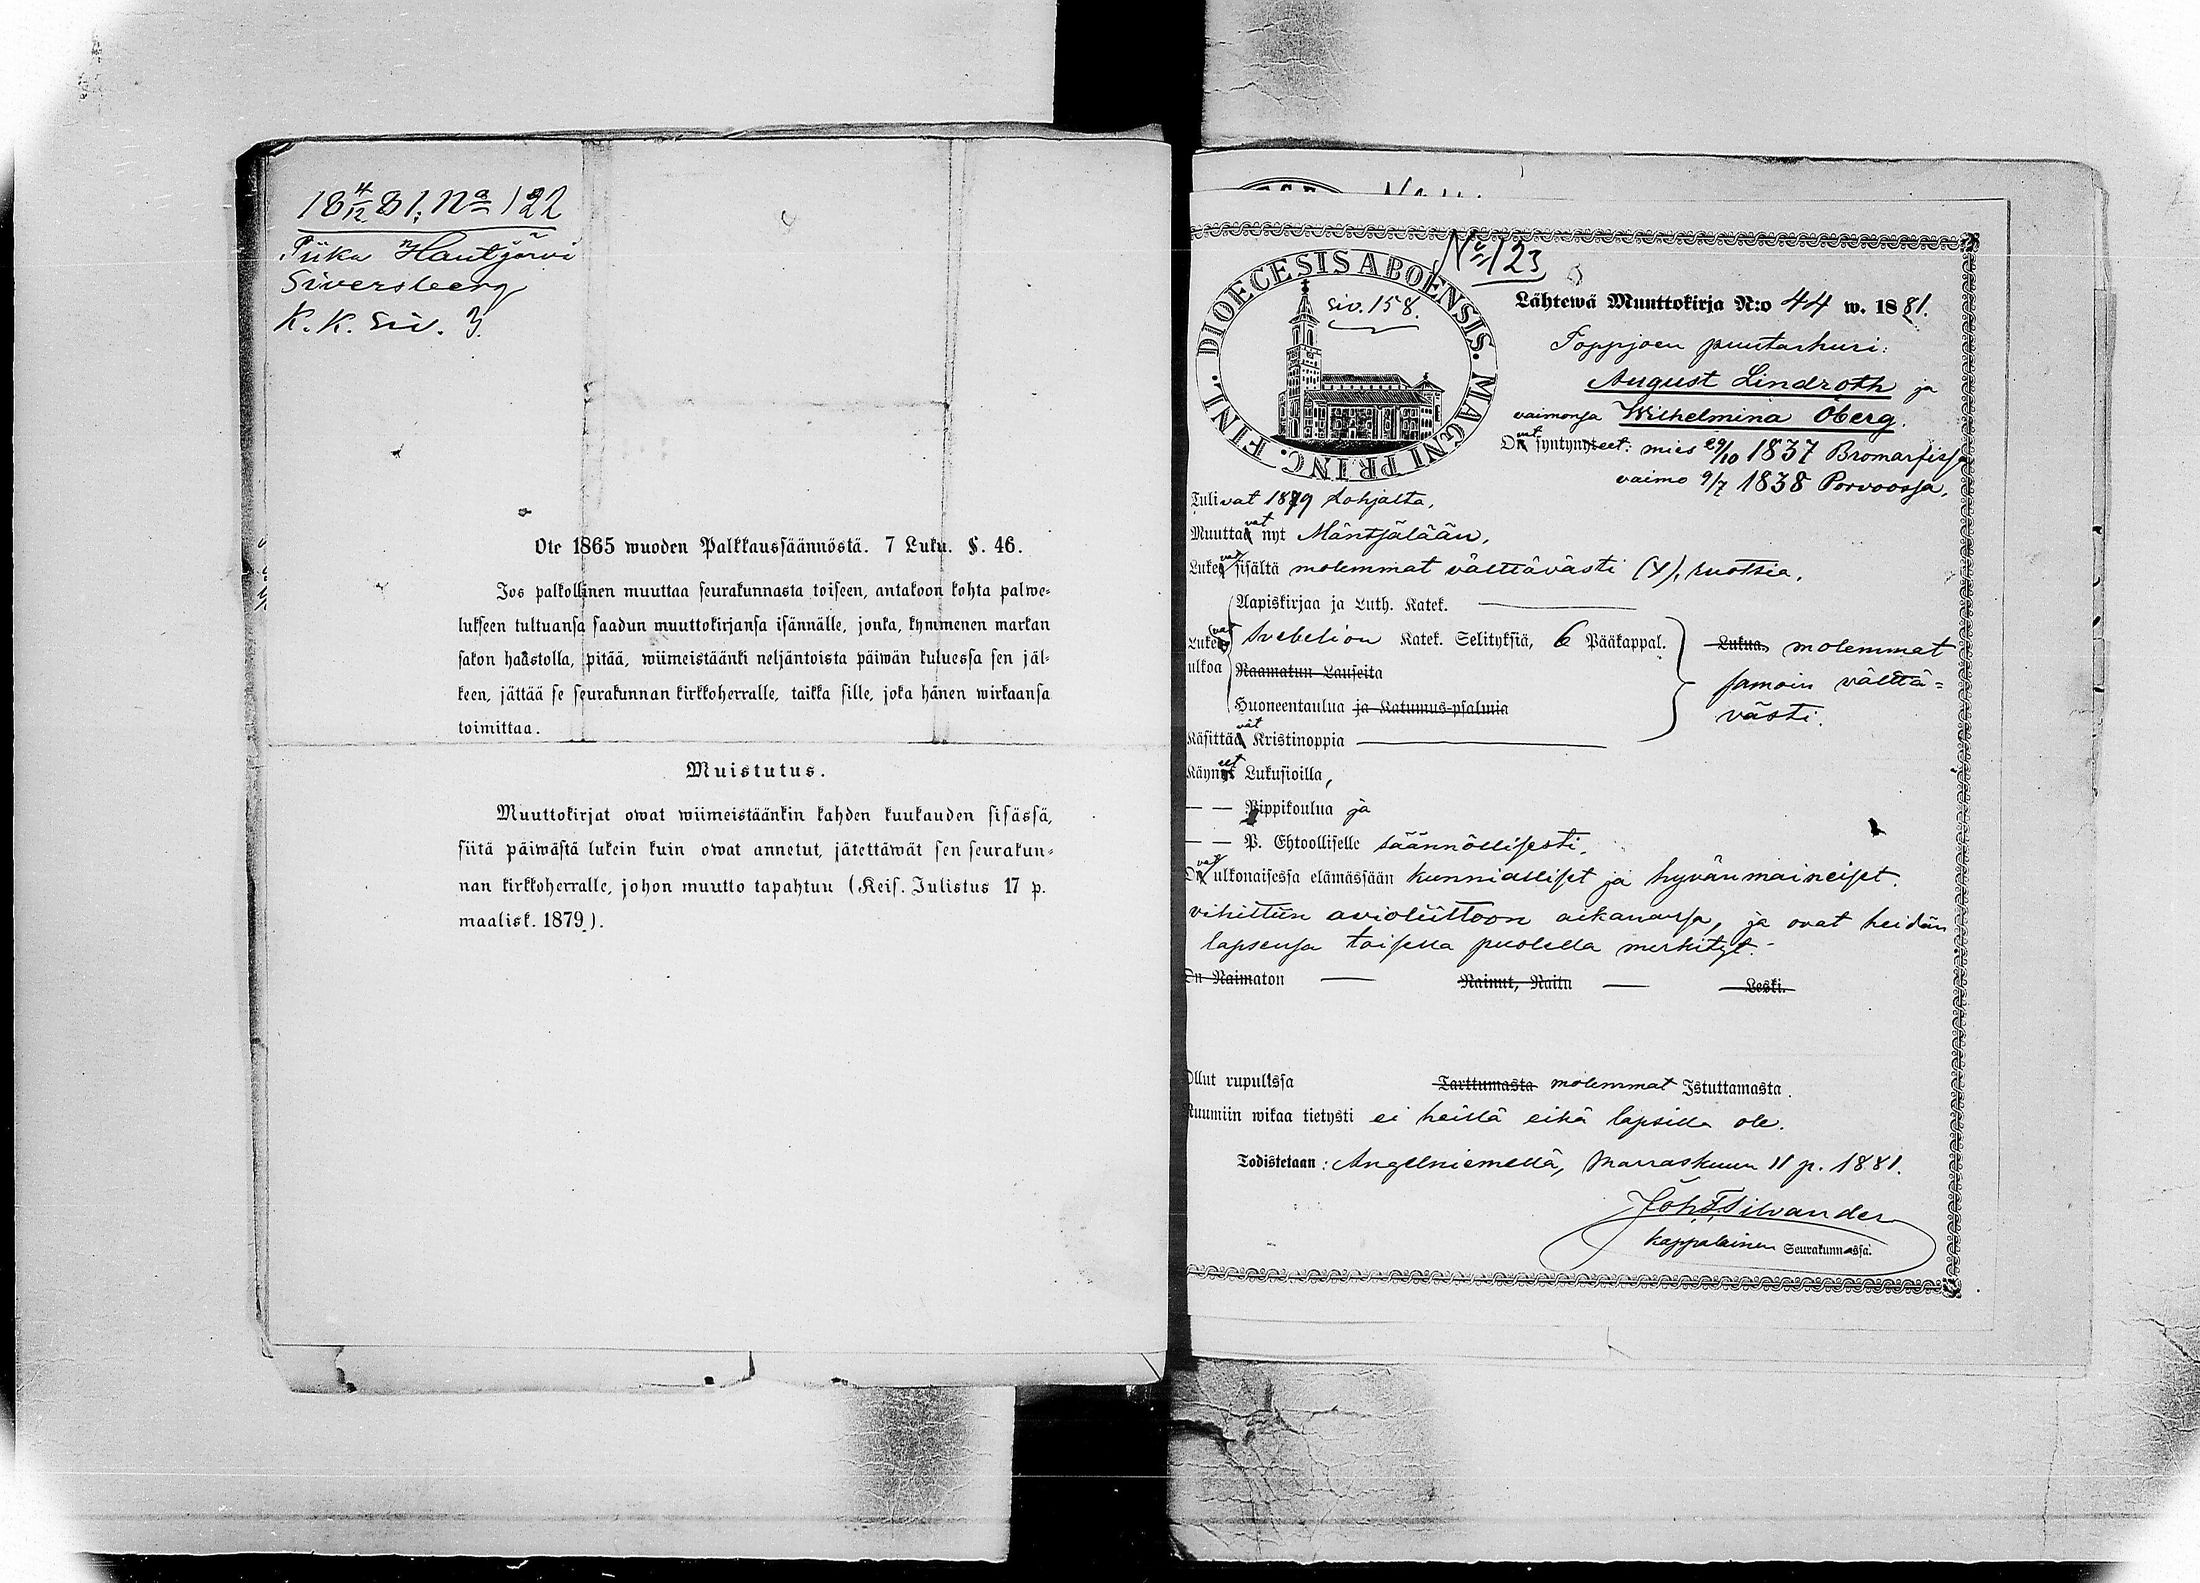 18 4/12 81; No 122
Piika Hautjärvi
Siversberg
K. K. Siv. 3.
Ote 1865 wuoden Palkkaussäännöstä. 7 Luku. §. 46.
Jos palkollinen muuttaa seurakunnasta toiseen, antakoon kohta palwe-
lukseen tultuansa saadun muuttokirjansa isännälle, jonka, kymmenen markan
sakon haastolla, pitää, wiimeistäänki neljäntoista päiwän kuluessa sen jäl-
keen, jättää se seurakunnan kirkkoherralle, taikka sille, joka hänen wirkaansa
toimittaa.
Muistutus.
Muuttokirjat owat wiimeistäänkin kahden kuukauden sisässä,
siitä päiwästä lukein kuin owat annetut, jätettäwät sen seurakun-
nan kirkkoherralle, johon muutto tapahtuu (Keis. Julistus 17 p.
maalisk. 1879).
No 123
DIOECESIS ABOENSIS. MAGNI PRINC. FINL.
siv. 158.
Lähtewä Muuttokirja N:o 44 w. 1881.
Toppjoen puutarhuri:
August Lindroth ja
vaimonsa Wilhelmina Öberg.
Ovat syntyneet: mies 29/10 1837 Bromarfissa
vaimo 9/7 1838 Porvoossa,
Tulivat 1879 Lohjalta,
Muuttavat nyt Mäntsälään,
Lukevat sisältä molemmat välttävästi (y), ruotsia,
Aapiskirjaa ja Luth. Katek.
Lukevat ulkoa Svebelion Katek. Selityksiä, 6 Pääkappal.
Raamatun Lauseita
Huoneentaulua ja Katumus-psalmia
Lukua molemmat
samoin välttä=
västi.
Käsittävät Kristinoppia
Käyneet Lukusioilla,
— — Rippikoulua ja
— — P. Ehtoolliselle säännöllisesti.
Ovat ulkonaisessa elämässään kunnialliset ja hyvänmaineiset.
vihittiin avioliittoon aikanansa, ja ovat heidän
lapsensa toisella puolella merkityt.-
On Naimaton — Nainut, Naitu — Leski.
Ollut rupulissa Tarttumasta molemmat Istuttamasta.
Ruumiin wikaa tietysti ei heillä eikä lapsilla ole.
Todistetaan: Angelniemellä, Marraskuun 11 p. 1881.
Joh. F. Silvander
kappalainen Seurakunnassa.